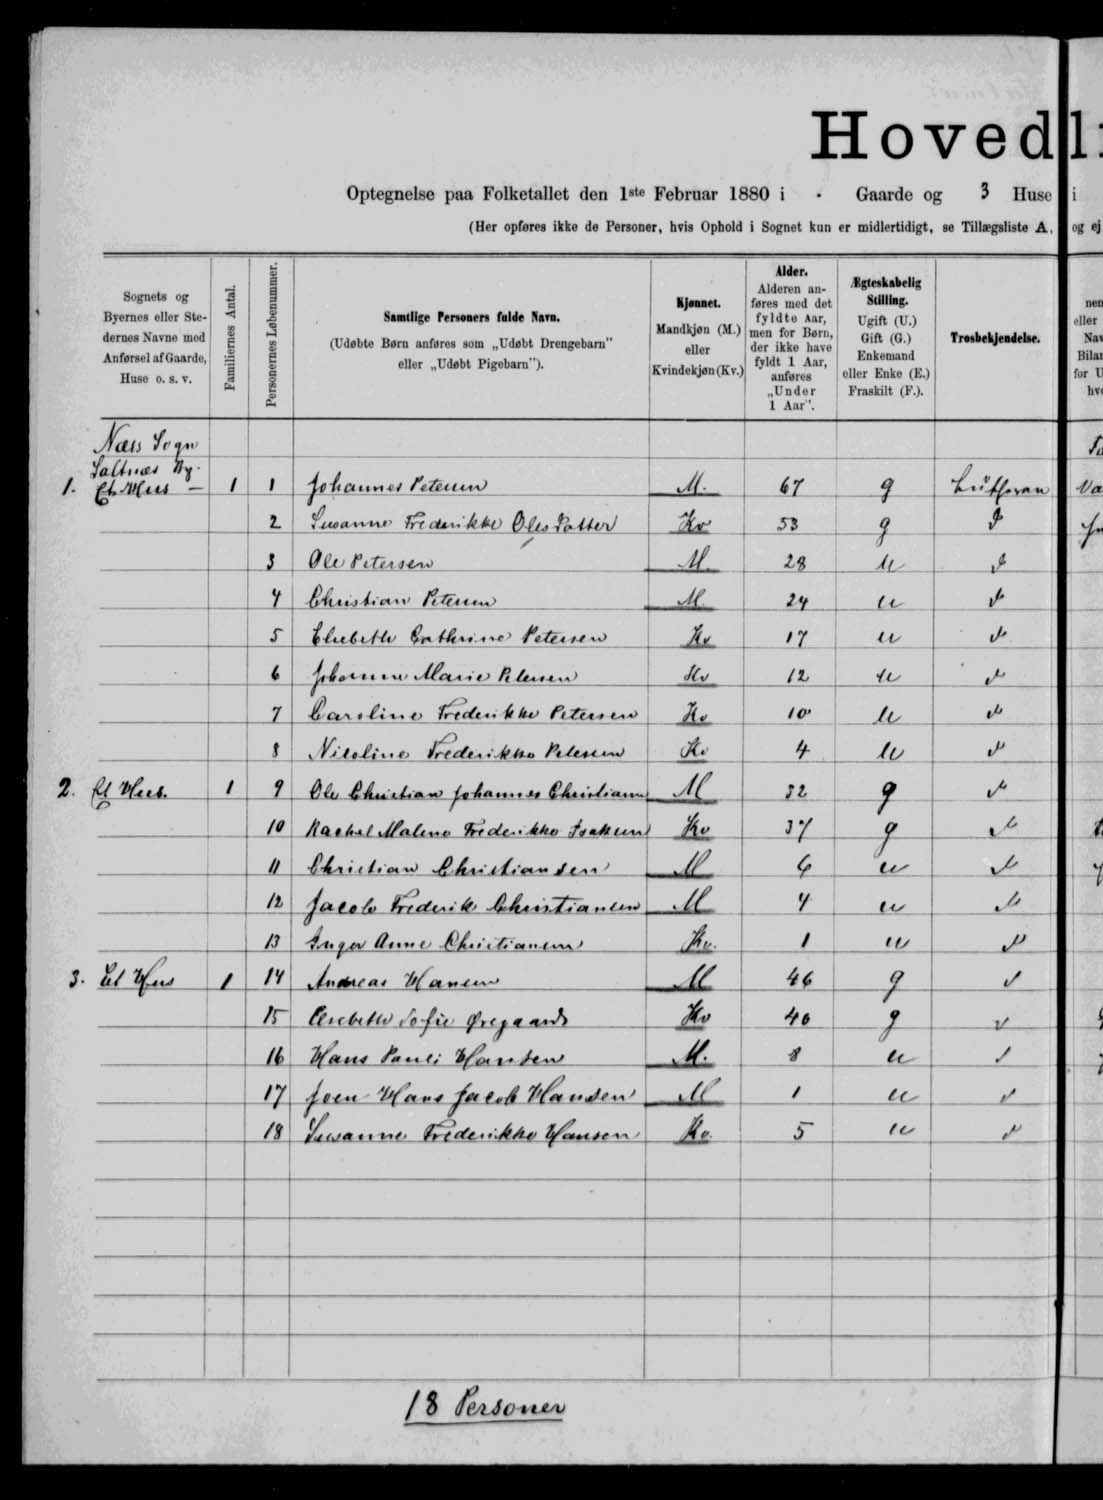 Hovedli
Optegnelse paa Folketallet den 1ste Februar 1880 i - Gaarde og 3 Huse i
(Her opføres ikke de Personer, hvis Ophold i Sognet kun er midlertidigt, se Tillægsliste A, og ej
Sognets og Byernes eller Stedernes Navne med Anførsel af Gaarde, Huse o. s. v.
Familiernes Antal.
Personernes Løbenummer.
Samtlige Personers fulde Navn.
(Udøbte Børn anføres som „Udøbt Drengebarn" eller „Udøbt Pigebarn").
Kjønnet.
Mandkjøn (M.) eller Kvindekjøn (Kv.)
Alder.
Alderen anføres med det fyldte Aar, men for Børn, der ikke have fyldt 1 Aar, anføres „Under 1 Aar".
Ægteskabelig Stilling.
Ugift (U.) Gift (G.) Enkemand eller Enke (E.) Fraskilt (F.).
Trosbekjendelse.
Næss Sogn
Saltnæs By.
1. Et Huus — 1 1 Johannes Petersen M. 67 g Lutheran
2 Susanne Frederikke Olesdatter Kv 53 g
3 Ole Petersen M. 28 u
4 Christian Petersen M. 24 u
5 Elsebeth Cathrine Petersen Kv 17 u
6 Johanne Marie Petersen Kv 12 u
7 Caroline Frederikke Petersen Kv 10 u
8 Nicoline Frederikke Petersen Kv 4 u
2. Et Huus. 1 9 Ole Christian Johannes Christiansen M 32 g
10 Rachel Malene Frederikke Isaksen Kv 37 g
11 Christian Christiansen M 6 u
12 Jacob Frederik Christiansen M 4 u
13 Inger Anne Christiansen Kv. 1 u
3. Et Hus 1 14 Andreas Hansen M 46 g
15 Elsebeth Sofie Øregaard Kv 40 g
16 Hans Pauli Hansen M. 8 u
17 Joen Hans Jacob Hansen M 1 u
18 Susanne Frederikke Hansen Kv. 5 u
18 Personer